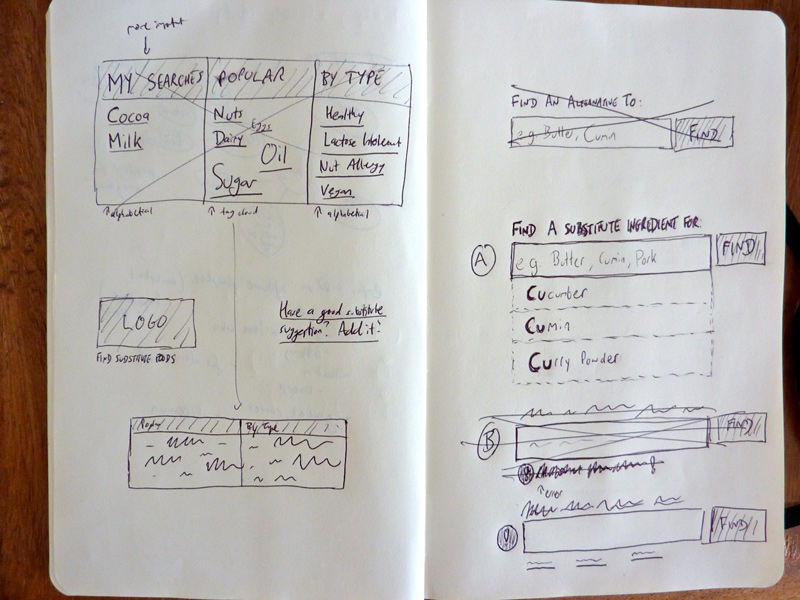 MY SEARCHES
POPULAR
BY TYPE
Cocoa
Milk
Nuts
Eggs
Dairy
Oil
Sugar
Healthy
Lactose Intolerant
Nut Allergy
Vegan
↑ alphabetical
↑ tag cloud
↑ alphabetical
LOGO
FIND SUBSTITUTE FOODS
Have a good substitute
suggestion? Add it!
By Type
FIND AN ALTERNATIVE TO:
e.g. Butter, Cumin
FIND
FIND A SUBSTITUTE INGREDIENT FOR:
A
e.g. Butter, Cumin, Pork
FIND
Cucumber
Cumin
Curry Powder
B
FIND
↑ error
!
FIND